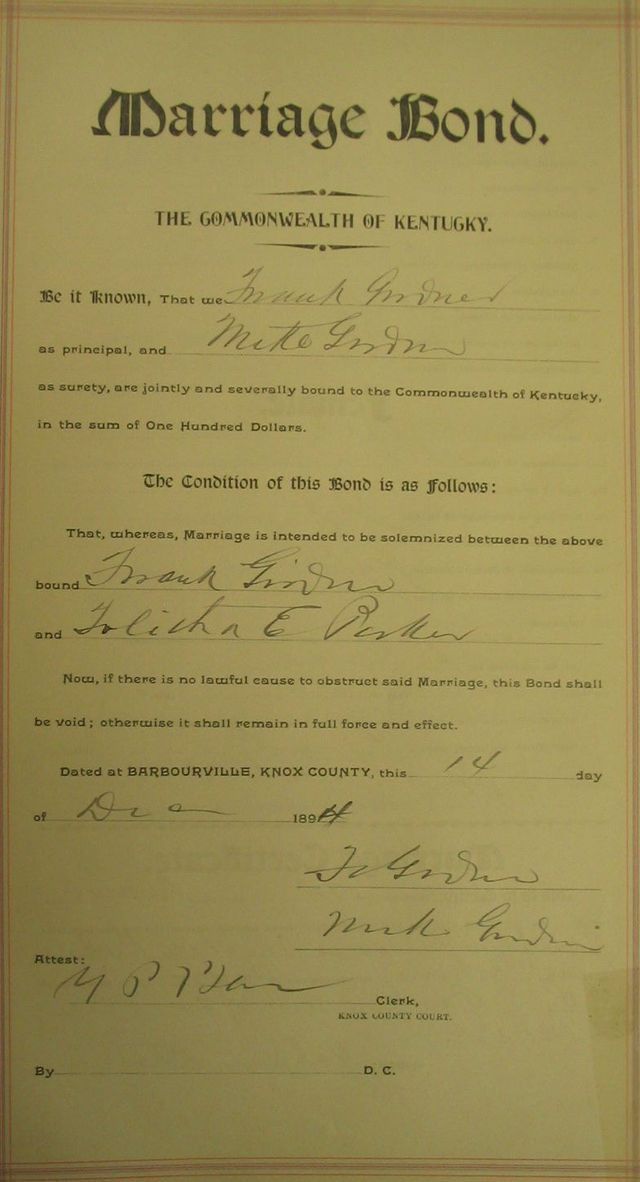 Marriage Bond.
THE COMMONWEALTH OF KENTUCKY.
Be it Known, That we Frank Girdner
as principal, and Girdner
as surety, are jointly and severally bound to the Commonwealth of Kentucky,
in the sum of One Hundred Dollars.
The Condition of this Bond is as Follows:
That, whereas, Marriage is intended to be solemnized between the above
bound Frank Girdner
and E Parker
Now, if there is no lawful cause to obstruct said Marriage, this Bond shall
be void; otherwise it shall remain in full force and effect.
Dated at BARBOURVILLE, KNOX COUNTY, this 14 day
of Dec 1894
Girdner
Girdner
Attest:
Clerk,
KNOX COUNTY COURT.
By D. C.